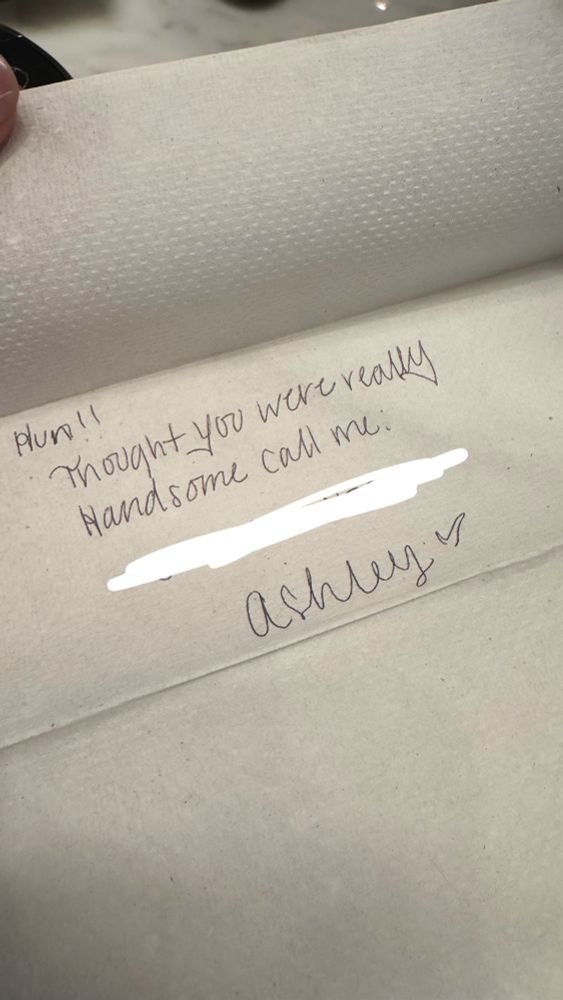 Thought you were really
Handsome call me:
ashley